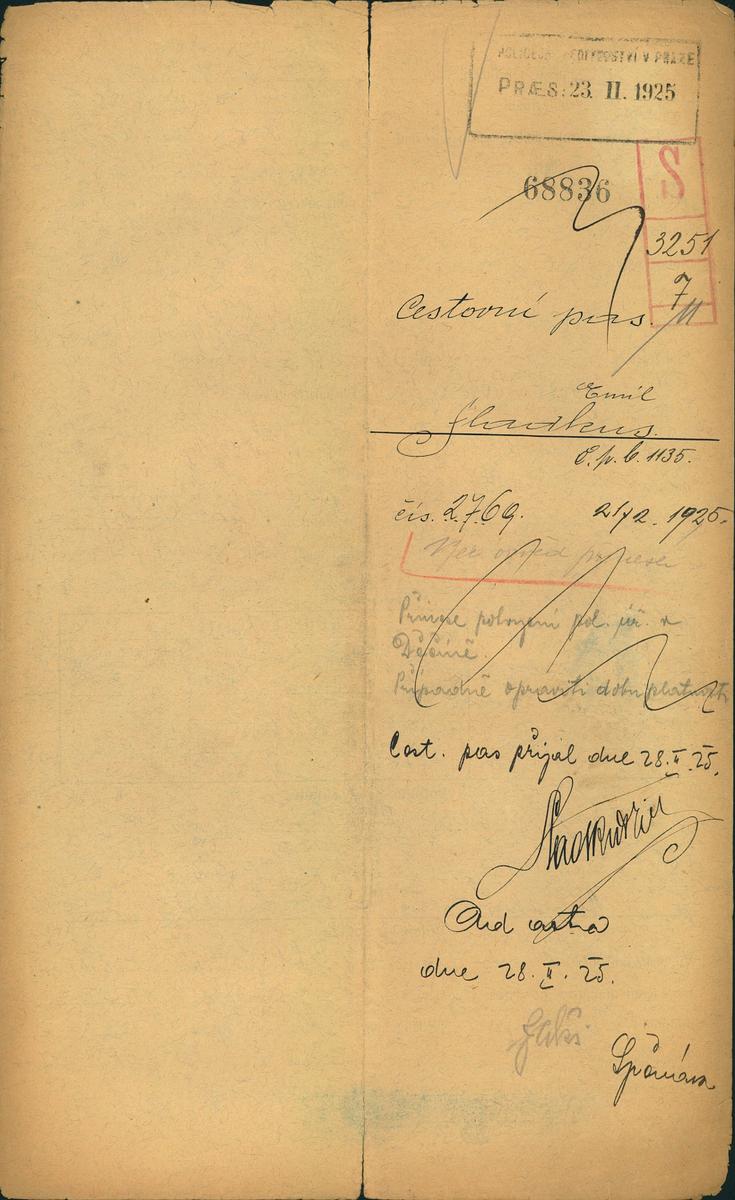 POLICEJNÍ ŘEDITELSTVÍ V PRAZE
PRÆS: 23. II. 1925
68836
S
3251
7
Cestovní pas.
Emil
č. p. b. 1135.
čís. 2769. 21/2. 1925.
pol. úř. v
Děčíně.
Případně opraviti dobu platnosti
Cest. pas přijal dne 28.II.25.
Ad acta
dne 28.II.25.